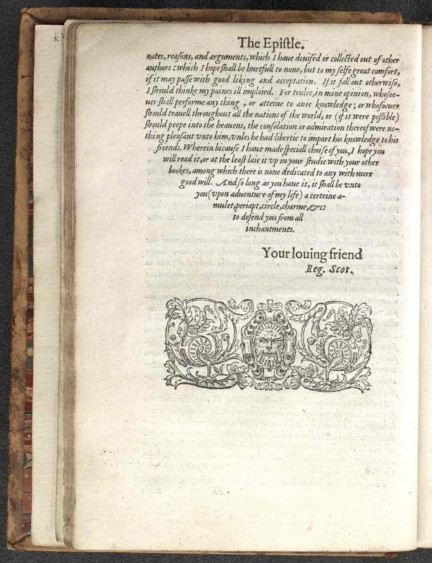 The Epiſtle.
notes, reaſons, and arguments, which I have deuiſed or collected out of other
authors: which I hope ſhall be hurtfull to none, but to my ſelfe great comfort,
if it may paſſe with good liking and acceptation. If it fall out otherwiſe,
I ſhould thinke my paines ill imploied. For trulie, in mine opinion, whoſoe-
uer ſhall performe any thing, or atteine to anie knowledge; or whoſoeuer
ſhould trauell throughout all the nations of the world, or (if it were poſſible)
ſhould peepe into the heauens, the conſolation or admiration thereof were no-
thing pleaſant vnto him, vnles he had libertie to impart his knowledge to his
friends. Wherein bicauſe I haue made ſpeciall choiſe of you, I hope you
will read it, or at the leaſt laie it vp in your ſtudie with your other
bookes, among which there is none dedicated to any with more
good will. And ſo long as you haue it, it ſhall be vnto
you (vpon aduenture of my life) a certeine a-
mulet, periapt, circle, charme, &c:
to defend you from all
inchantments.
Your louing friend
Reg. Scot.